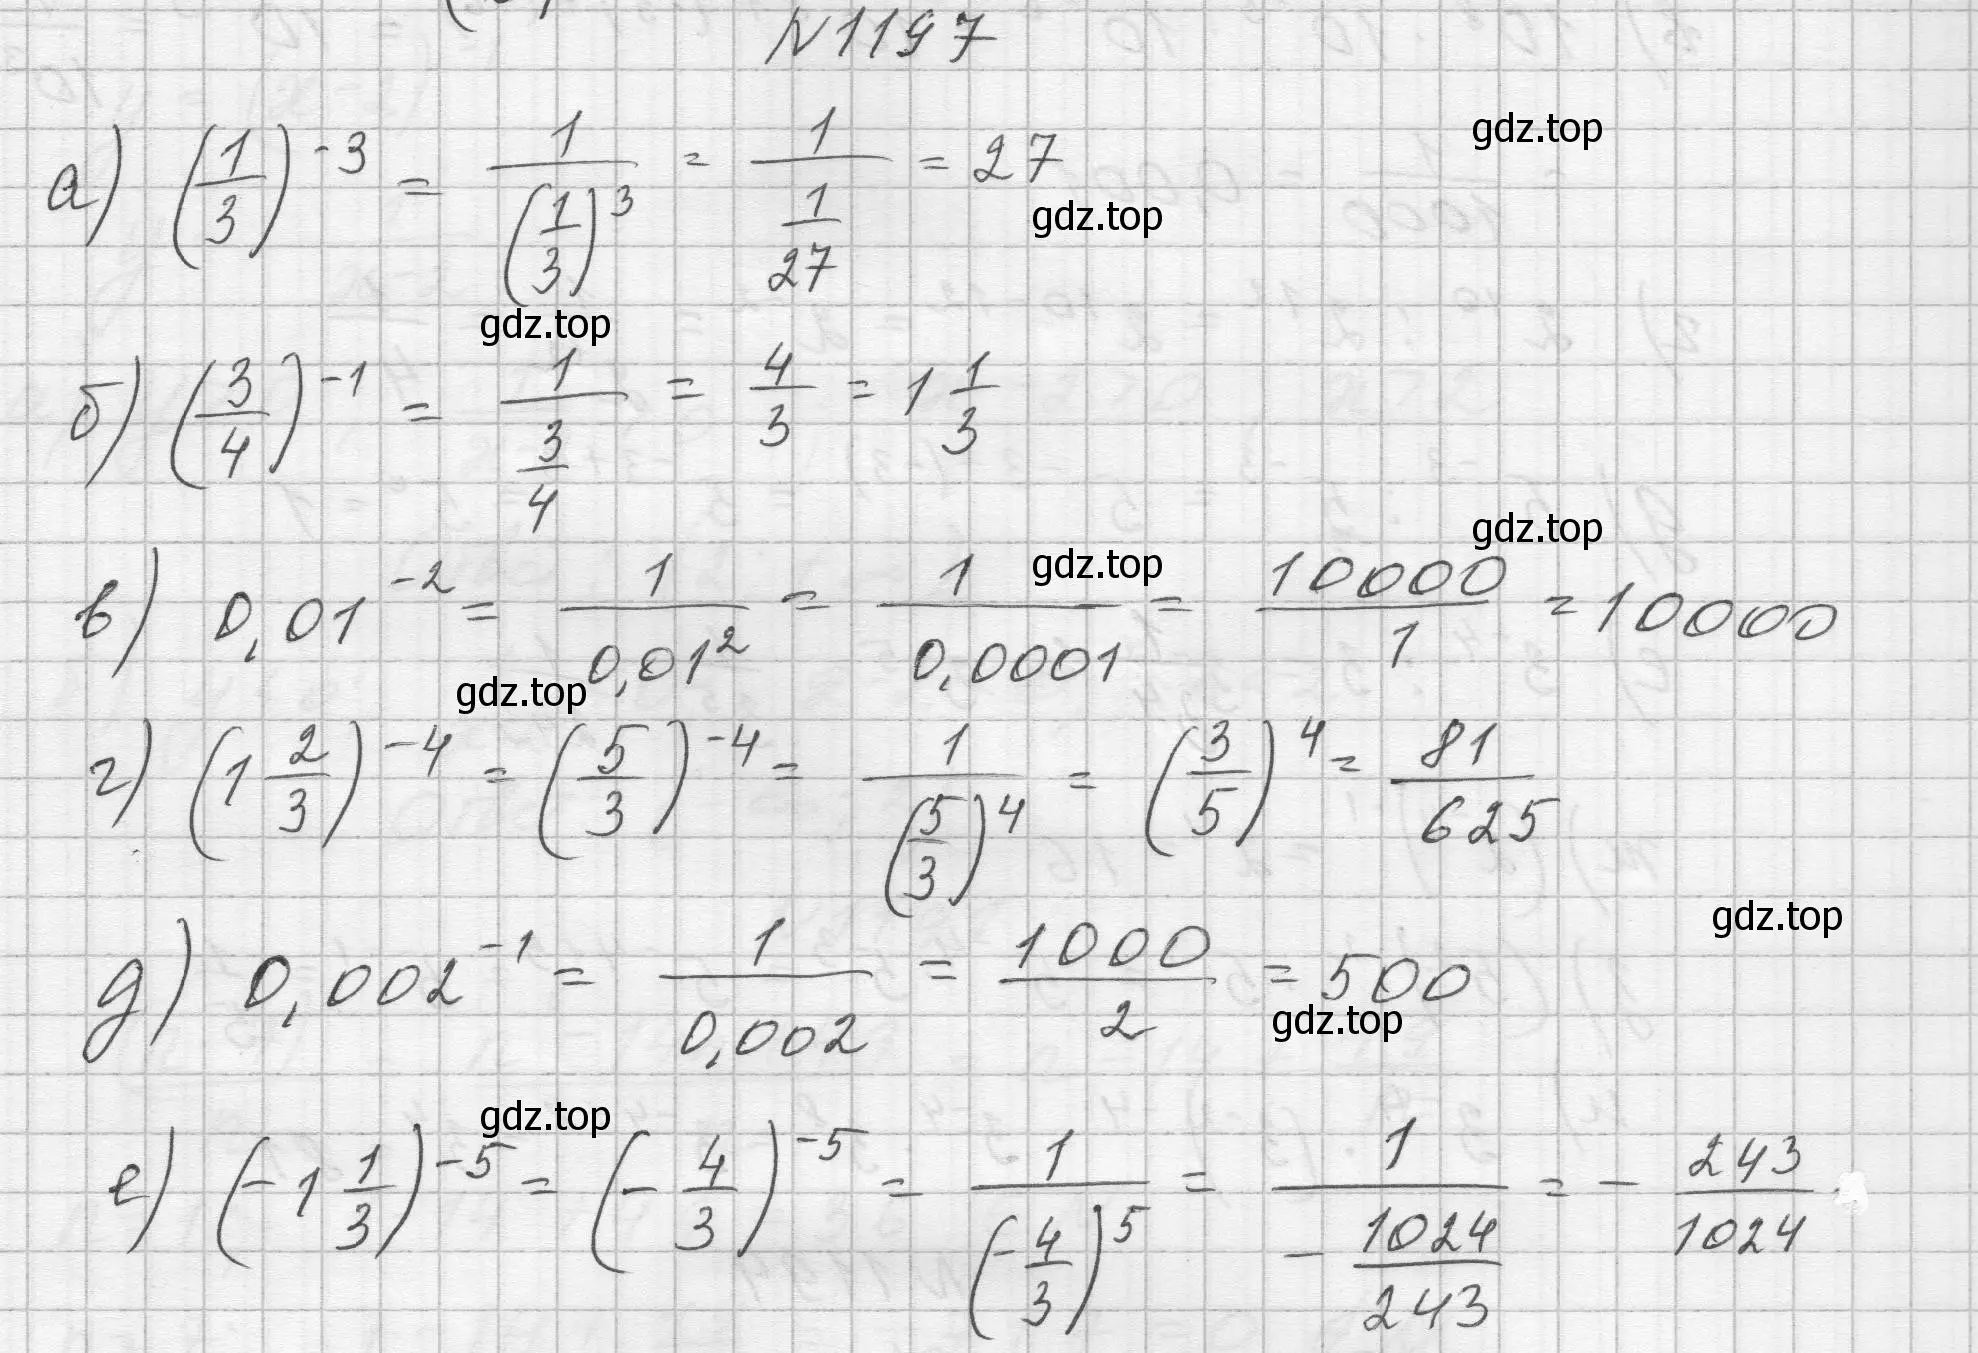 N1197
gdz.top
а) (1/3)^-3 = 1/(1/3)^3 = 1/(1/27) = 27
gdz.top
gdz.top
б) (3/4)^-1 = 1/(3/4) = 4/3 = 1 1/3
gdz.top
gdz.top
в) 0,01^-2 = 1/0,01^2 = 1/0,0001 = 10000/1 = 10000
gdz.top
г) (1 2/3)^-4 = (5/3)^-4 = 1/(5/3)^4 = (3/5)^4 = 81/625
gdz.top
д) 0,002^-1 = 1/0,002 = 1000/2 = 500
gdz.top
gdz.top
е) (-1 1/3)^-5 = (-4/3)^-5 = 1/(-4/3)^5 = 1/(-1024/243) = -243/1024